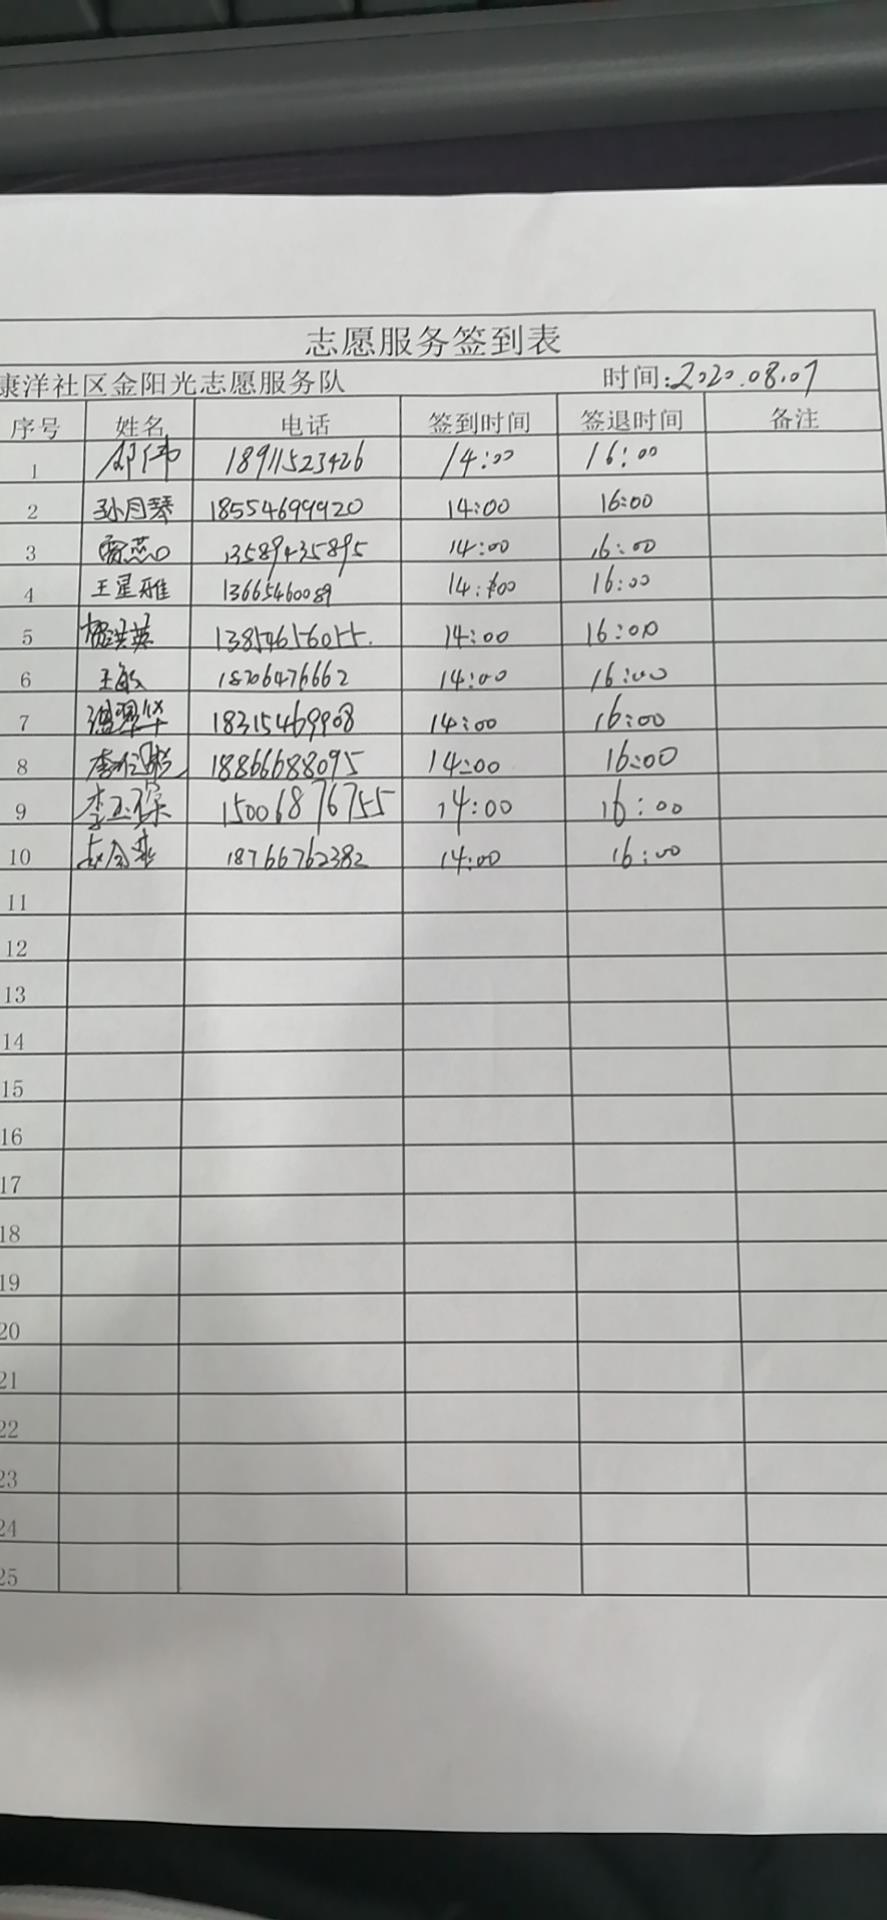 志愿服务签到表
康洋社区金阳光志愿服务队 时间:2020.08.07
序号 姓名 电话 签到时间 签退时间 备注
1 伟 18911523426 14:00 16:00
2 孙月琴 18554699920 14:00 16:00
3 燕 13589435895 14:00 16:00
4 王星雅 13665460089 14:00 16:00
5 杨洪英 13854656055. 14:00 16:00
6 王敏 18706476662 14:00 16:00
7 温翠华 18315469908 14:00 16:00
8 李 18866688095 14:00 16:00
9 李玉 15006876755 14:00 16:00
10 18766762382 14:00 16:00
11
12
13
14
15
16
17
18
19
20
21
22
23
24
25